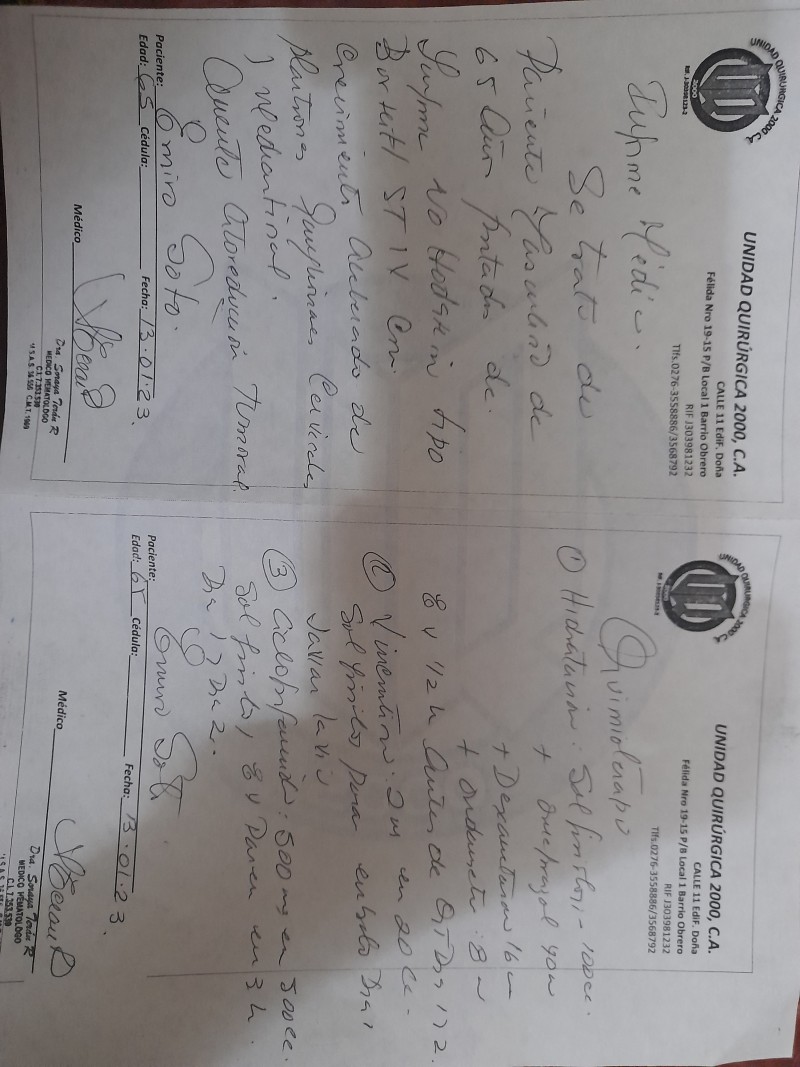 UNIDAD QUIRÚRGICA 2000 C.A.
RIF. J-303981123-2
UNIDAD QUIRÚRGICA 2000, C.A.
CALLE 11 Edif. Doña
Félida Nro 19-15 P/B Local 1 Barrio Obrero
RIF J303981232
Tlfs.0276-3558886/3568792
Informe Médico.
Se trata de
Paciente Masculino de
65 Años portador de.
Linfoma No Hodgkin tipo
ST IV Con
Crecimiento Acelerado de
Ganglionares Cervicales
y mediastinal.
Amerita Citoreducción Tumoral.
Paciente: Emiro Soto.
Edad: 65 Cédula: Fecha: 13.01.23.
Médico
Dra. Soraya Terán R
MEDICO HEMATOLOGO
C.I.7.353.539
M.S.A.S. 36.555 C.M.T. 1969
UNIDAD QUIRÚRGICA 2000 C.A.
UNIDAD QUIRÚRGICA 2000, C.A.
CALLE 11 Edif. Doña
Félida Nro 19-15 P/B Local 1 Barrio Obrero
RIF J303981232
Tlfs.0276-3558886/3568792
Quimioterapia
① Hidratación: Sol fisiolog- 100cc.
+ omeprazol 40m
+ Dexametasona 16m
+ ondansetron: 8m
EV 1/2 h Antes de QT Dia 1 y 2.
② Vincristina: 2m en 20cc.
Sol fisiolog para embolo Dia 1
lavar la vía
③ Ciclofosfamida: 500mg en 500cc.
Sol fisiolog, EV Pasar en 3h.
Dia 1 y Dia 2.
Paciente: Emiro Soto
Edad: 65 Cédula: Fecha: 13.01.23.
Médico
Dra. Soraya Terán R
MEDICO HEMATOLOGO
C.I.7.353.539